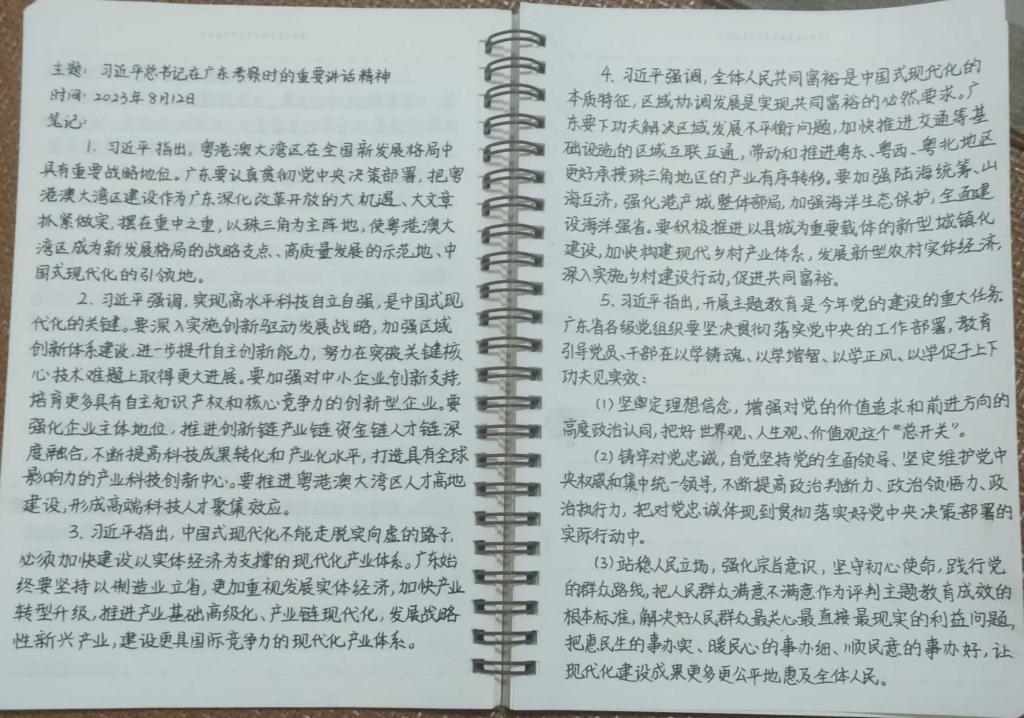 主题：习近平总书记在广东考察时的重要讲话精神
时间：2023年8月12日
笔记：
1. 习近平指出，粤港澳大湾区在全国新发展格局中
具有重要战略地位。广东要认真贯彻党中央决策部署，把粤
港澳大湾区建设作为广东深化改革开放的大机遇、大文章
抓紧做实，摆在重中之重，以珠三角为主阵地，使粤港澳大
湾区成为新发展格局的战略支点、高质量发展的示范地、中
国式现代化的引领地。
2. 习近平强调，实现高水平科技自立自强，是中国式现
代化的关键。要深入实施创新驱动发展战略，加强区域
创新体系建设，进一步提升自主创新能力，努力在突破关键核
心技术难题上取得更大进展。要加强对中小企业创新支持，
培育更多具有自主知识产权和核心竞争力的创新型企业。要
强化企业主体地位，推进创新链产业链资金链人才链深
度融合，不断提高科技成果转化和产业化水平，打造具有全球
影响力的产业科技创新中心。要推进粤港澳大湾区人才高地
建设，形成高端科技人才聚集效应。
3. 习近平指出，中国式现代化不能走脱实向虚的路子，
必须加快建设以实体经济为支撑的现代化产业体系。广东始
终要坚持以制造业立省，更加重视发展实体经济，加快产业
转型升级，推进产业基础高级化、产业链现代化，发展战略
性新兴产业，建设更具国际竞争力的现代化产业体系。
4. 习近平强调，全体人民共同富裕是中国式现代化的
本质特征，区域协调发展是实现共同富裕的必然要求。广
东要下功夫解决区域发展不平衡问题，加快推进交通等基
础设施的区域互联互通，带动和推进粤东、粤西、粤北地区
更好承接珠三角地区的产业有序转移。要加强陆海统筹、山
海互济，强化港产城整体部局，加强海洋生态保护，全面建
设海洋强省。要积极推进以县城为重要载体的新型城镇化
建设，加快构建现代乡村产业体系，发展新型农村实体经济，
深入实施乡村建设行动，促进共同富裕。
5. 习近平指出，开展主题教育是今年党的建设的重大任务。
广东省各级党组织要坚决贯彻落实党中央的工作部署，教育
引导党员、干部在以学铸魂、以学增智、以学正风、以学促干上下
功夫见实效：
(1) 坚定理想信念，增强对党的价值追求和前进方向的
高度政治认同，把好世界观、人生观、价值观这个“总开关”。
(2) 铸牢对党忠诚，自觉坚持党的全面领导、坚定维护党中
央权威和集中统一领导，不断提高政治判断力、政治领悟力、政
治执行力，把对党忠诚体现到贯彻落实好党中央决策部署的
实际行动中。
(3) 站稳人民立场，强化宗旨意识，坚守初心使命，践行党
的群众路线，把人民群众满意不满意作为评判主题教育成效的
根本标准，解决好人民群众最关心最直接最现实的利益问题，
把惠民生的事办实、暖民心的事办细、顺民意的事办好，让
现代化建设成果更多更公平地惠及全体人民。